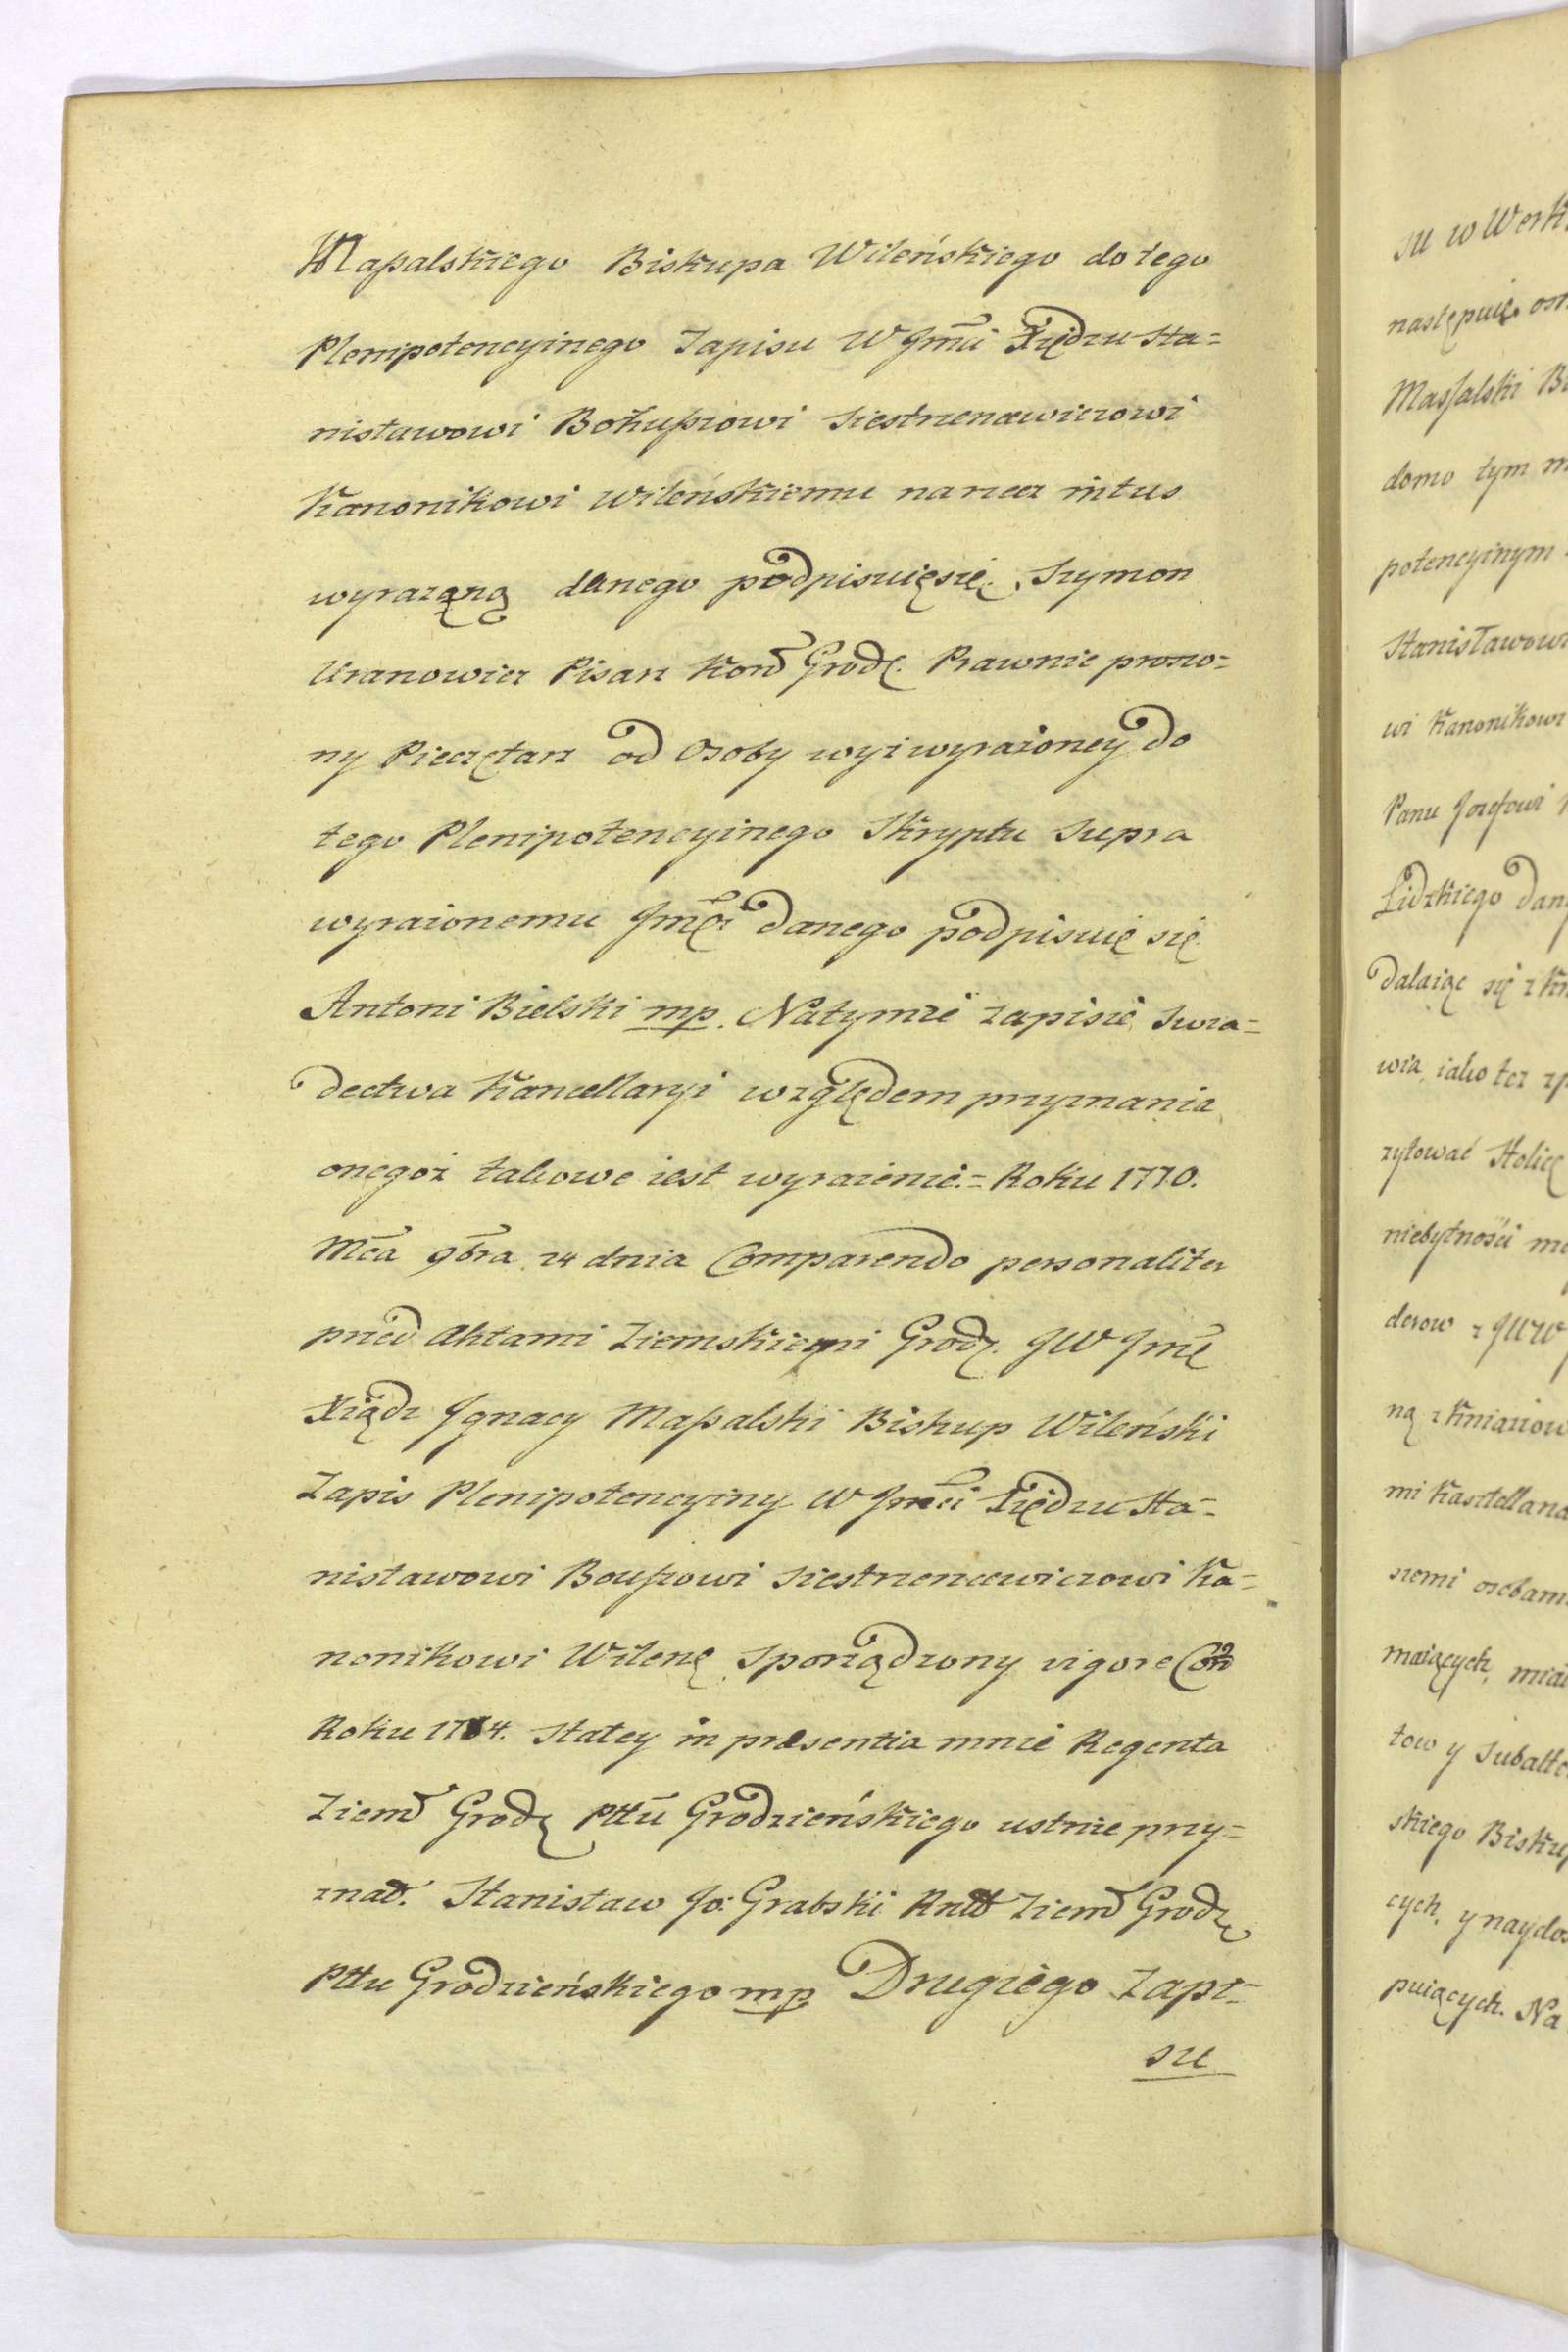 Maſsalskiego Biskupa Wileńskiego do tego
Plenipotencyinego Zapisu W Jmći Xiędzu Sta=
nisławowi Bohuſzowi Siestrzencewiczowi
Kanonikowi Wileńskiemu na rzecz intus
wyrazoną danego podpisuię się. Szymon
Uranowicz Pisarz Kom̃ Grodz. Prawnie proszo=
ny Pieczętarz od Osoby wyż wyrażoney do
tego Plenipotencyinego Skryptu supra
wyrażonemu Jmći danego podpisuię się
Antoni Bielski mp. Na tymże zapisie swia=
dectwa Kancellaryi względem przyznania
onegoż takowe iest wyrażenie.= Roku 1770.
Mca 9bra 24 dnia Comparendo personaliter
przed Aktami Ziemskiemi Grodz. JW Jmć
Xiądz Jgnacy Maſsalski Biskup Wileński
Zapis Plenipotencyiny W Jmći Xiędzu Sta=
nisławowi Bouſzowi Siestrzencewiczowi Ka=
nonikowi Wilenz sporządzony vigore Con
Roku 1764. Stałey in præsentia mnie Regenta
Ziem Grodz Pttu Grodzieńskiego ustnie przy=
znał. Stanisław Jo: Grabski Rntt Ziem Grodz
Pttu Grodzieńskiego mp Drugiego Zapi=
su
su w Werk
następuię. os
Maſsalski Bi
domo tym
potencyinym
Stanisławowi
wi Kanonikowi
Panu Jozefowi
Lidzkiego dan
dalaiąc się z
wia, iako też
zytować Stolicę
niebytności
derow z JWW
ną z Kniaziow
mi Kasztellana
szemi osobami
maiących,
tow y subalte
skiego Bisku
cych, y naydos
puiących. Na